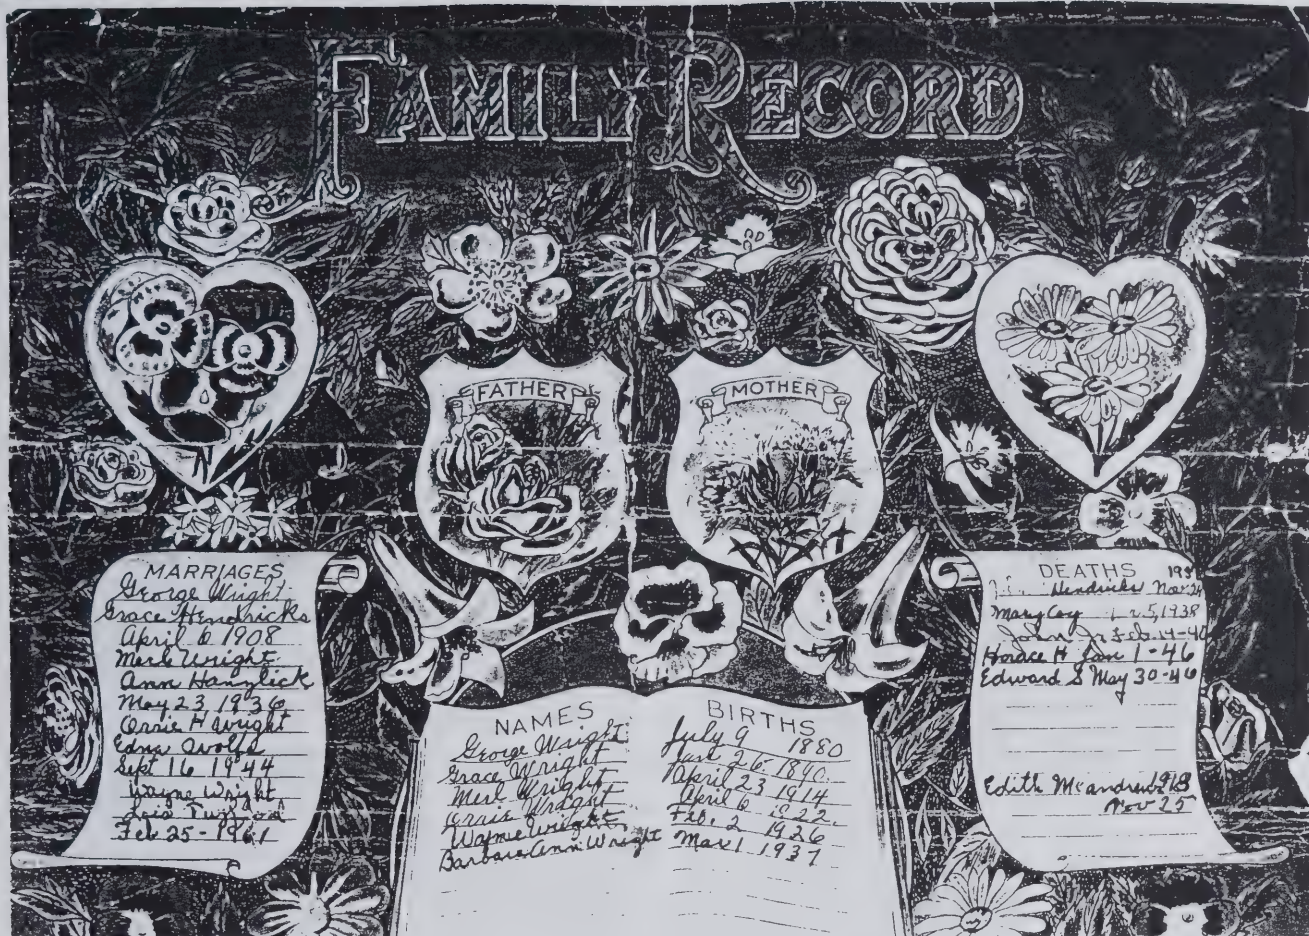 FAMILY RECORD
FATHER
MOTHER
MARRIAGES
George Wright
Grace Hendricks
April 6 1908
Merl Wright
Ann Hanzlick
May 23 1936
Orrie H Wright
Edna Wolfe
Sept 16 1944
Wayne Wright
Lois
Feb 25 - 1961
NAMES
George Wright
Grace Wright
Merl Wright
Orrie Wright
Wayne Wright
Barbara Ann Wright
BIRTHS
July 9 1880
26 1890
April 23 1914
April 6 1922
Feb. 2 1926
Mar 1 1937
DEATHS
Hendricks Nov
Mary Coy 5, 1938
John Jr Feb 14-46
Horace H Jan 1-46
Edward S May 30-46
Edith McAndrews 1918
Nov 25